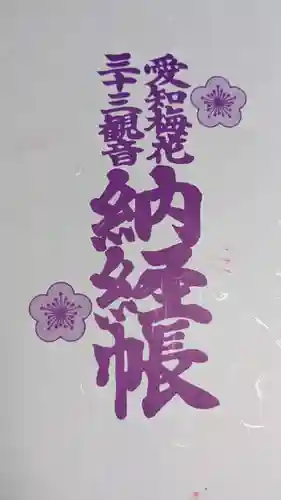 愛知梅花
三十三観音
納経帳